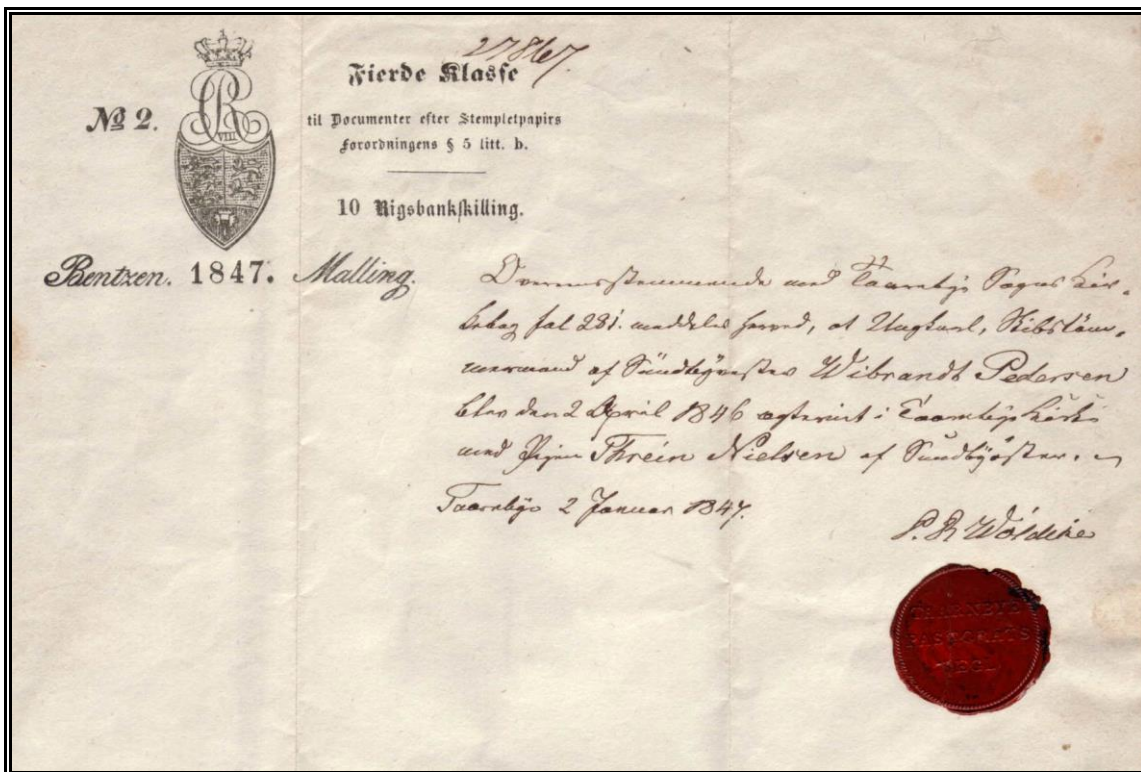 27867.
Fierde Klasse
№ 2.
VIII
til Documenter efter Stempletpapirs
Forordningens § 5 litt. b.
10 Rigsbankskilling.
Bentzen. 1847. Malling.
Overensstemmende med Taarnbye Sogns Kir-
kebog fol 281. meddeles herved, at Ungkarl, Skibstöm-
mermand af Sundbyøster Wibrandt Pedersen
blev den 2 April 1846 ægteviet i Taarnbye Kirke
med Pigen Threin Nielsen af Sundbyöster.
Taarnbye 2 Januar 1847.
Wöldike
TAARNBYE
PASTORATS
SEGL